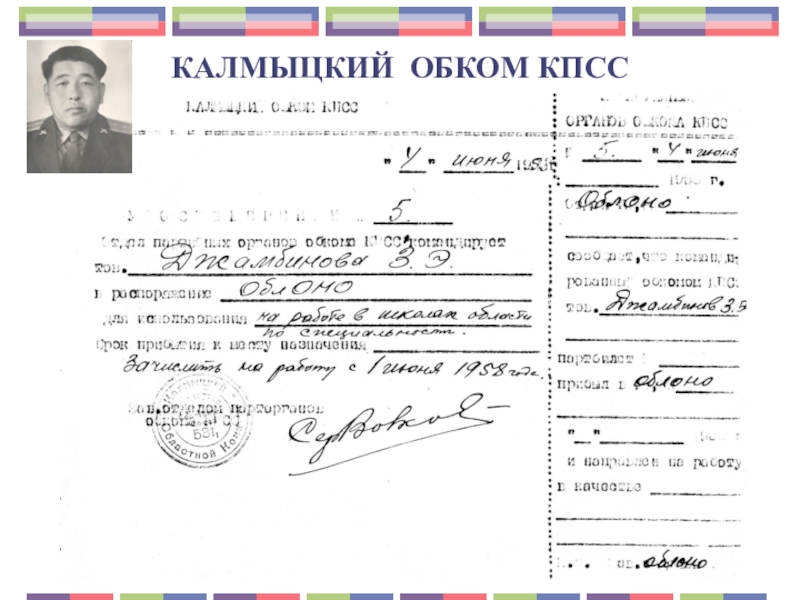 КАЛМЫЦКИЙ ОБКОМ КПСС
КАЛМЫЦКИ ОБКОМ КПСС
"4" июня 195
5.
Отдел партийных органов обкома КПСС командирует
тов. Джамбинова З. Э.
в распоряжение ОблОНО
для использования на работе в школах области
по специальност.
Срок прибытия к месту назначения
Зачислить на работу с 1 июня 1958 года.
Зав.отделом парторганов
обкома КПСС
Областной Ком
531
ОРГАНОВ ОБКОМА КПСС
5. "4" июня
195 г.
Облоно
сообщает, что команди-
рованный обкомом КПСС
тов. Джамбинов З.Э
партбилет
прибыл в облоно
" "
и направлен на работу
в качестве
Зав. облоно.